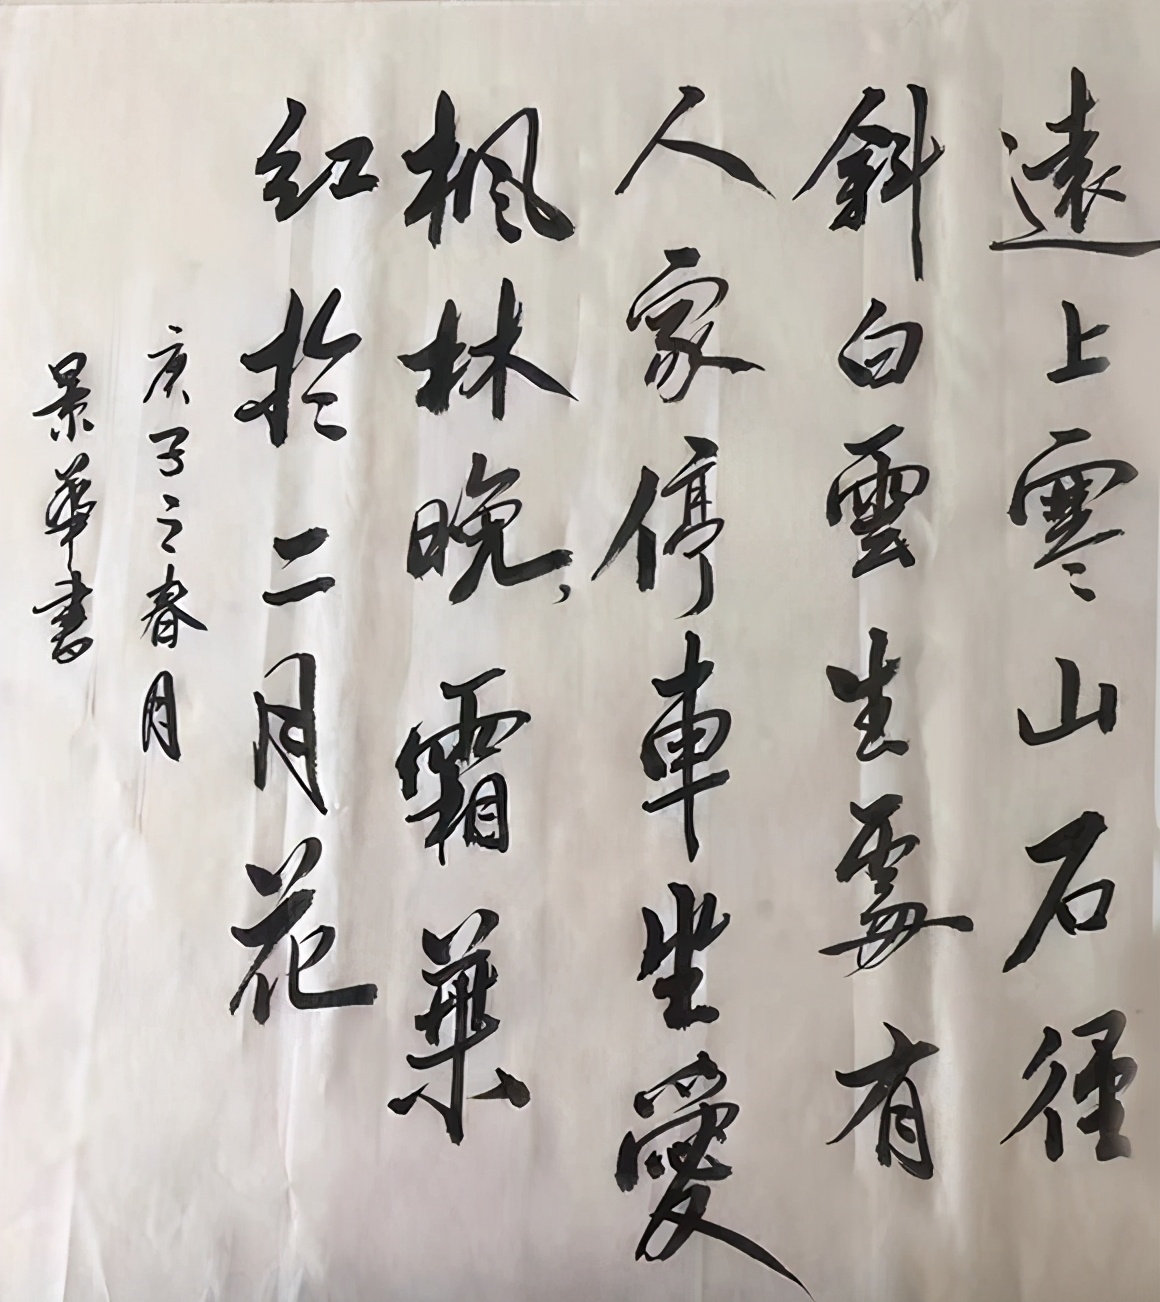 遠上寒山石徑
斜白雲生處有
人家停車坐愛
枫林晚霜葉
红於二月花
庚子之春月
景華書